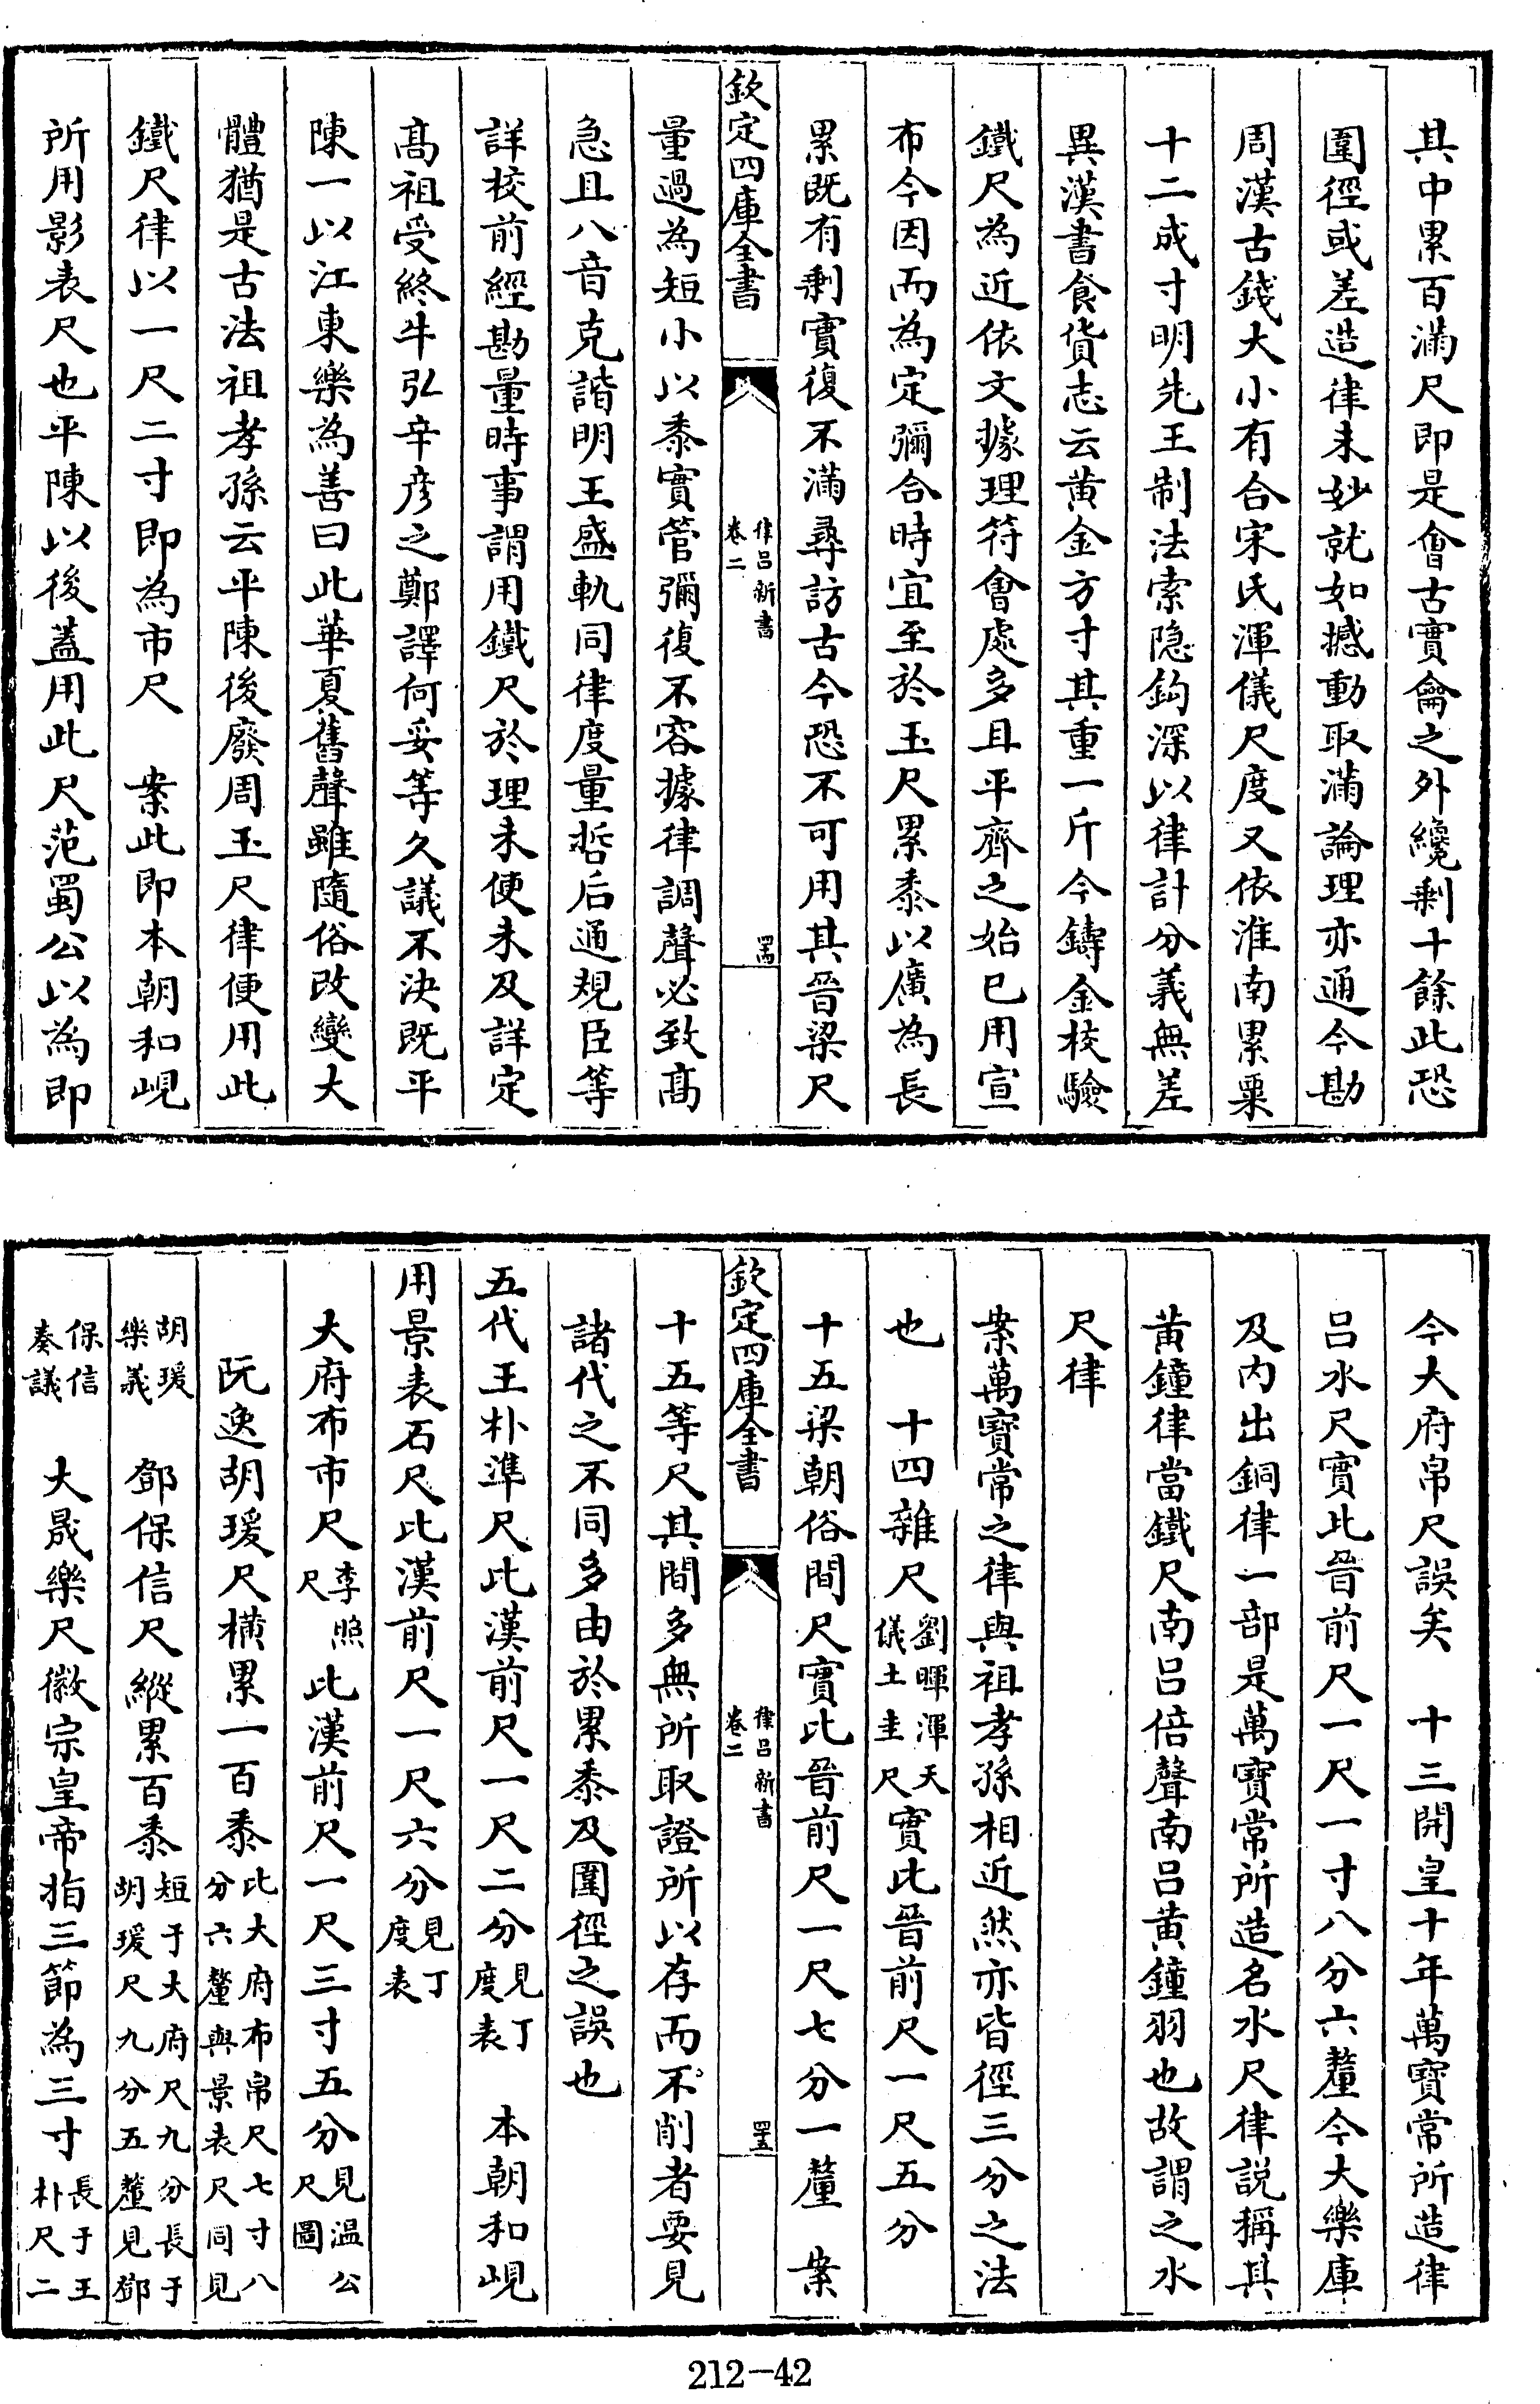 其中累百滿尺即是會古實龠之外纔剩十餘此恐
圍徑或差造律未妙就如撼動取滿論理亦通今勘
周漢古錢大小有合宋氏渾儀尺度又依淮南累粟
十二成寸明先王制法索隐鈎深以律計分義無差
異漢書食貨志云黄金方寸其重一斤今鑄金校驗
鐵尺為近依文據理符會處多且平齊之始已用宣
布今因而為定彌合時宜至於玉尺累黍以廣為長
累既有剩實復不滿尋訪古今恐不可用其晉梁尺
欽定四庫全書
律吕新書
卷二
罡
量過為短小以黍實管彌復不容據律調聲必致髙
急且八音克諧明王盛軌同律度量哲后通規臣等
詳校前經勘量時事謂用鐵尺於理未便未及詳定
髙祖受終牛弘辛彦之鄭譯何妥等久議不決既平
陳一以江東樂為善曰此華夏舊聲雖隨俗改變大
體猶是古法祖孝孫云平陳後廢周玉尺律便用此
鐵尺律以一尺二寸即為市尺　案此即本朝和峴
所用影表尺也平陳以後蓋用此尺范蜀公以為即
今大府帛尺誤矣　十三開皇十年萬寶常所造律
吕水尺實比晉前尺一尺一寸八分六釐今大樂庫
及内出銅律一部是萬寶常所造名水尺律説稱其
黄鐘律當鐵尺南吕倍聲南吕黄鐘羽也故謂之水
尺律
案萬寶常之律與祖孝孫相近然亦皆徑三分之法
也　十四雜尺劉暉渾天儀土圭尺實比晉前尺一尺五分
十五梁朝俗間尺實比晉前尺一尺七分一釐　案
欽定四庫全書
律吕新書
卷二
罡
十五等尺其間多無所取證所以存而不削者要見
諸代之不同多由於累黍及圍徑之誤也
五代王朴準尺比漢前尺一尺二分見丁度表　本朝和峴
用景表石尺比漢前尺一尺六分見丁度表
大府布市尺李照尺比漢前尺一尺三寸五分見温公尺圖
阮逸胡瑗尺横累一百黍比大府布帛尺七寸八分六釐與景表尺同見
胡瑗樂義　鄧保信尺縱累百黍短于大府尺九分長于胡瑗尺九分五釐見鄧
保信奏議　大晟樂尺徽宗皇帝指三節為三寸長于王朴尺二
212-42